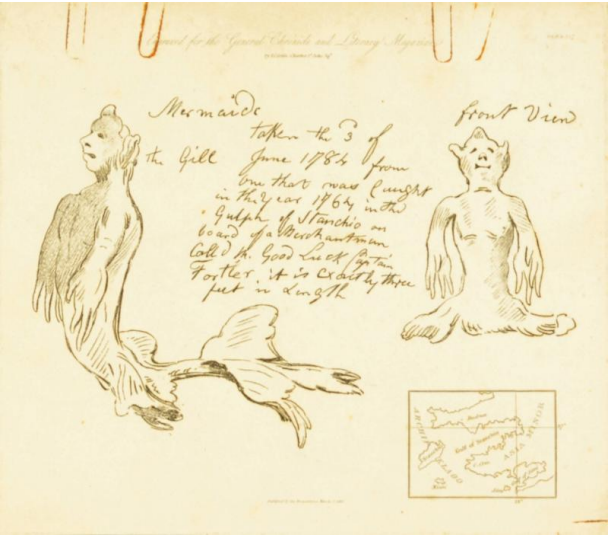 Engraved for the General Chronicle and Literary Magazine
Mermaids
front View
taken the 3 of
the Gill June 1784 from
one that was Caught
in the Year 1764 in the
Gulph of Stanchio on
board of a Merchantman
Call'd the Good Luck Captain
Fortier it is Exactly three
feet in Length
Gulf of Stanchio
ARCHIPELAGO
ASIA MINOR